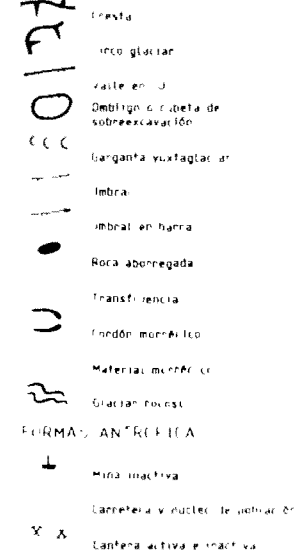 Cresta
Circo glaciar
Valle en U
Ombligo o cubeta de
sobreexcavación
Garganta yuxtaglaciar
Umbral
Umbral en barra
Roca aborregada
Transfluencia
Cordón morrénico
Material morrénico
Glaciar rocoso
FORMAS ANTROPICA
Mina inactiva
Carretera y nucleo de población
Cantera activa e inactiva